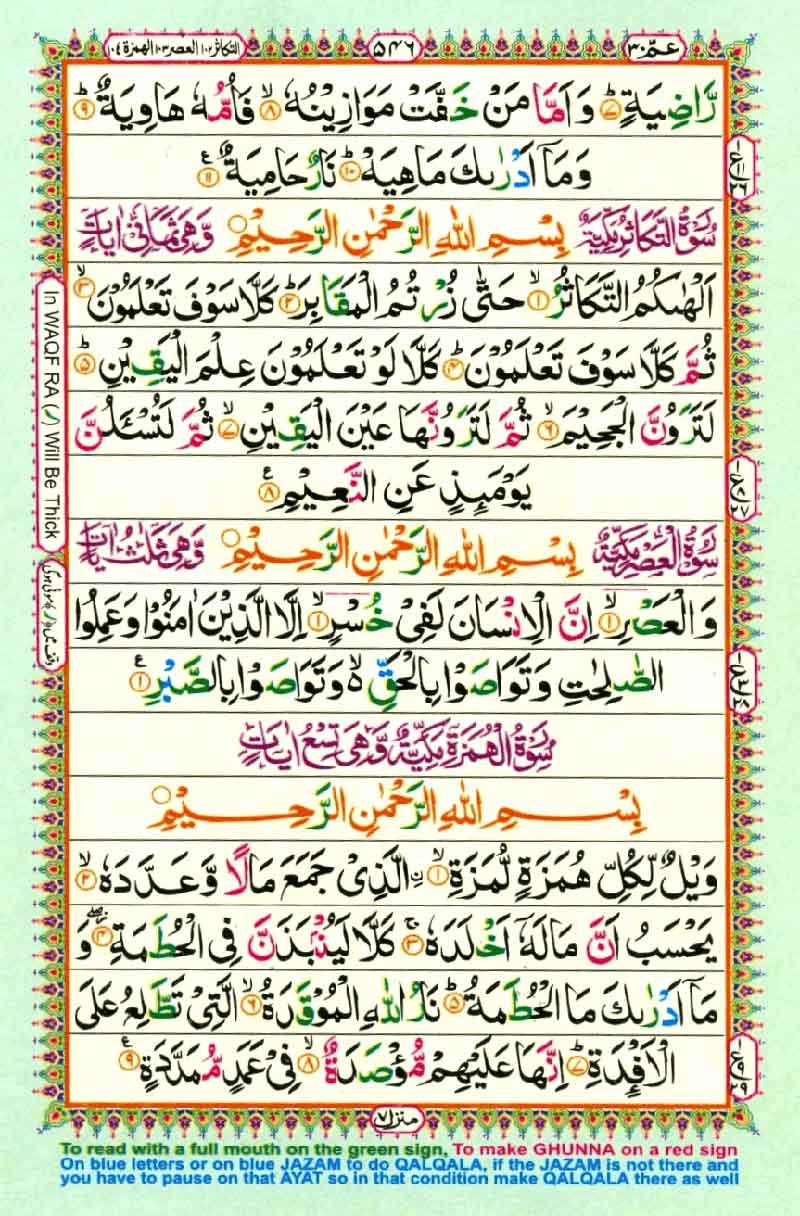 التكاثر ١٠٢ العصر ١٠٣ الهمزة ١٠٤
٥٤٦
عمّ ٣٠
رَّاضِيَةٍ ؕ ۷ وَ اَمَّا مَنْ خَفَّتْ مَوَازِيْنُهٗ ۙ ۸ فَاُمُّهٗ هَاوِيَةٌ ؕ ۹
وَ مَاۤ اَدْرٰىكَ مَاهِيَهْ ؕ ۱۰ نَارٌ حَامِيَةٌ ۱۱ ع
سُوْرَةُ التَّكَاثُرِ مَكِّيَّةٌ بِسْمِ اللّٰهِ الرَّحْمٰنِ الرَّحِيْمِ وَّهِىَ ثَمَانِىْ اٰيَاتٍ
اَلْهٰىكُمُ التَّكَاثُرُ ۙ ۱ حَتّٰى زُرْتُمُ الْمَقَابِرَ ؕ ۲ كَلَّا سَوْفَ تَعْلَمُوْنَ ۙ ۳
ثُمَّ كَلَّا سَوْفَ تَعْلَمُوْنَ ؕ ۴ كَلَّا لَوْ تَعْلَمُوْنَ عِلْمَ الْيَقِيْنِ ؕ ۵
لَتَرَوُنَّ الْجَحِيْمَ ۙ ۶ ثُمَّ لَتَرَوُنَّهَا عَيْنَ الْيَقِيْنِ ۙ ۷ ثُمَّ لَتُسْـَٔلُنَّ
يَوْمَىِٕذٍ عَنِ النَّعِيْمِ ۸ ع
سُوْرَةُ الْعَصْرِ مَكِّيَّةٌ بِسْمِ اللّٰهِ الرَّحْمٰنِ الرَّحِيْمِ وَّهِىَ ثَلٰثُ اٰيَاتٍ
وَ الْعَصْرِ ۙ ۱ اِنَّ الْاِنْسَانَ لَفِىْ خُسْرٍ ۙ ۱ اِلَّا الَّذِيْنَ اٰمَنُوْا وَ عَمِلُوا
الصّٰلِحٰتِ وَ تَوَاصَوْا بِالْحَقِّ ۙ ۵ وَ تَوَاصَوْا بِالصَّبْرِ ۱ ع
سُوْرَةُ الْهُمَزَةِ مَكِّيَّةٌ وَّهِىَ تِسْعُ اٰيَاتٍ
بِسْمِ اللّٰهِ الرَّحْمٰنِ الرَّحِيْمِ
وَيْلٌ لِّكُلِّ هُمَزَةٍ لُّمَزَةِ ۙ ۱ ِ۟الَّذِىْ جَمَعَ مَالًا وَّ عَدَّدَهٗ ۙ ۲
يَحْسَبُ اَنَّ مَالَهٗۤ اَخْلَدَهٗ ۚ ۳ كَلَّا لَيُنْۢبَذَنَّ فِى الْحُطَمَةِ ۴ وَ
مَاۤ اَدْرٰىكَ مَا الْحُطَمَةُ ؕ ۵ نَارُ اللّٰهِ الْمُوْقَدَةُ ۙ ۶ الَّتِىْ تَطَّلِعُ عَلَى
الْاَفْـِٕدَةِ ؕ ۷ اِنَّهَا عَلَيْهِمْ مُّؤْصَدَةٌ ۙ ۸ فِىْ عَمَدٍ مُّمَدَّدَةٍ ۹ ع
In WAQF RA (ر) Will Be Thick
منزل ۷
To read with a full mouth on the green sign, To make GHUNNA on a red sign
On blue letters or on blue JAZAM to do QALQALA, if the JAZAM is not there and
you have to pause on that AYAT so in that condition make QALQALA there as well